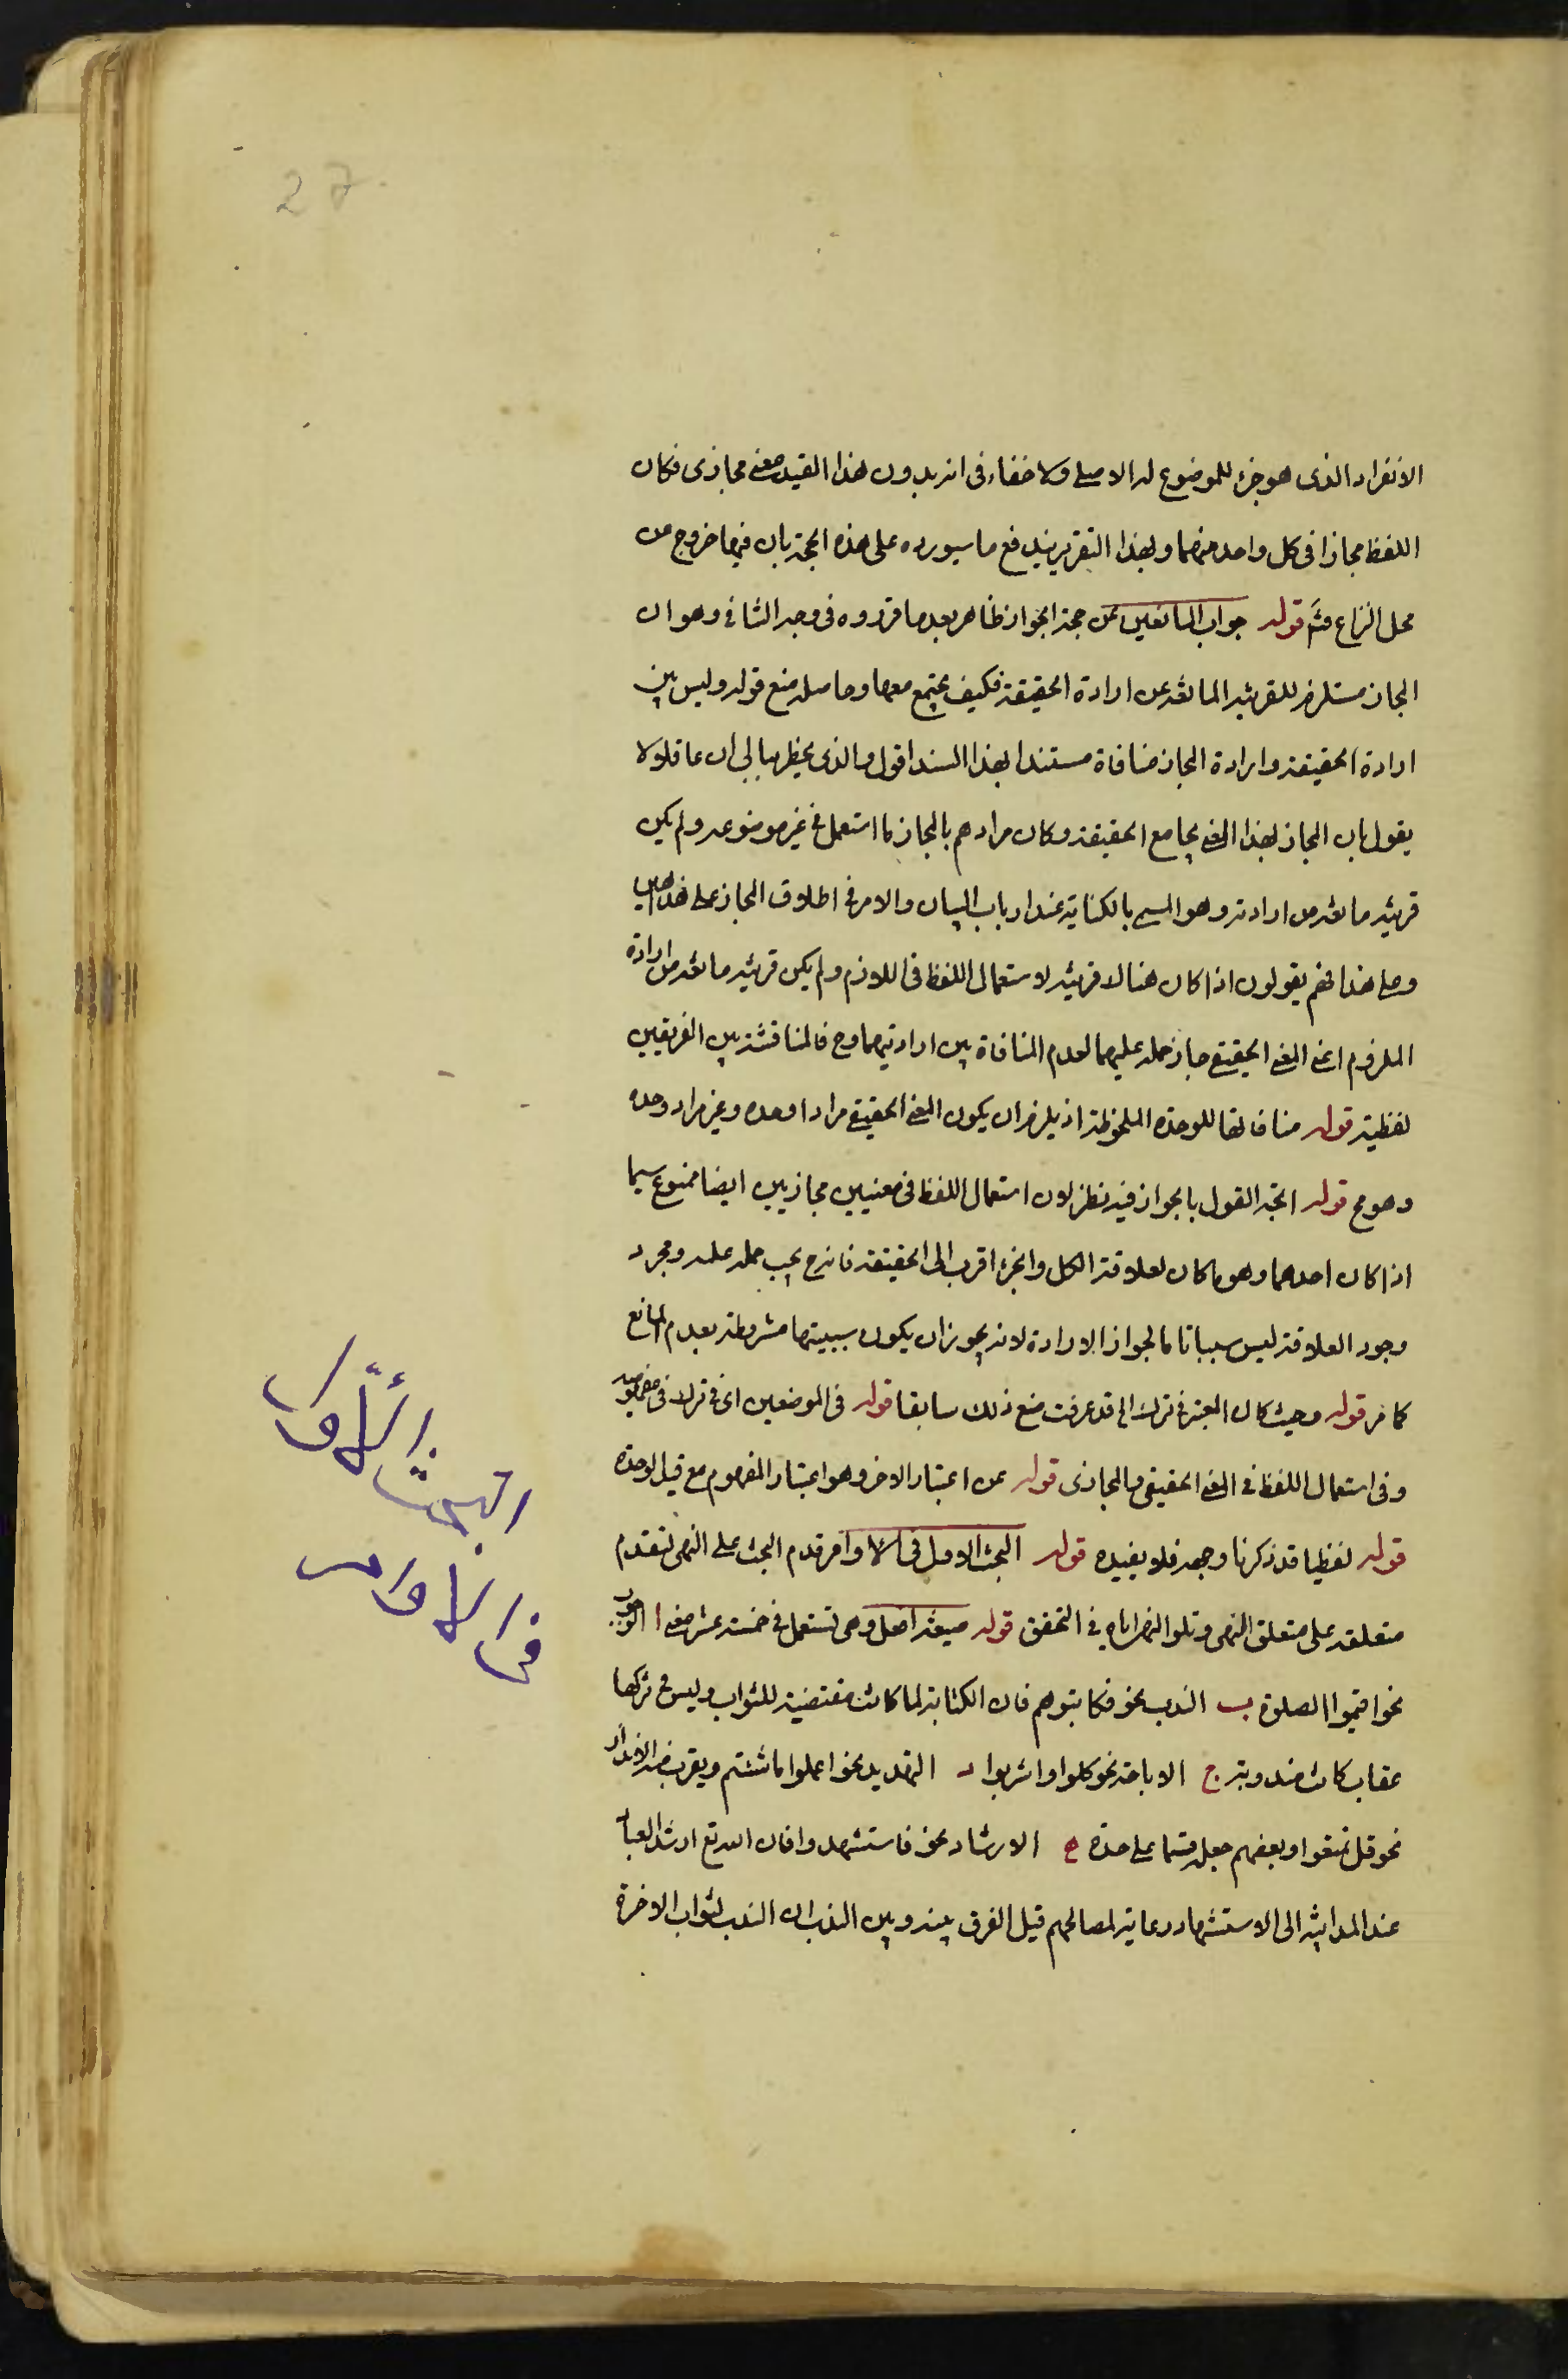 27
الانفراد الذى هو جزء للموضوع له الاصلى ولا خفاء فى انه بدون هذا القيد معنى مجازى فكان
اللفظ مجازا فى كل واحد منهما وبهذا التقرير يندفع ما سيورده على هذه الحجة بان فيها خروج عن
محل النزاع فتم قوله جواب المانعين عن حجة الجواز ظاهر بعد ما قرروه فى وجه الثانى وهو ان
المجاز مستلزم للقرينة المانعة عن ارادة الحقيقة فكيف يجتمع معها وحاصله منع قوله وليس بين
ارادة الحقيقة وارادة المجاز منافاة مستندا بهذا السند اقول والذى يخطر ببالى ان عاقلا لا
يقول بان المجاز بهذا المعنى يجامع الحقيقة وكان مرادهم بالمجاز ما استعمل فى غير موضوعه ولم يكن
قرينة مانعة من ارادته وهو المسمى بالكناية عند ارباب البيان والامر فى اطلاق المجاز على هذا هين
وعلى هذا فهم يقولون اذا كان هناك قرينة لاستعمال اللفظ فى اللازم ولم يكن قرينة مانعة من ارادة
الملزوم اعنى المعنى الحقيقى جاز حمله عليهما لعدم المنافاة بين ارادتيهما وح فالمناقشة بين الفريقين
لفظية قوله منافاتها للوحدة الملحوظة اذ يلزم ان يكون المعنى الحقيقى مرادا وحده وغير مراد وحده
وهو مح قوله اتجه القول بالجواز فيه نظر لان استعمال اللفظ فى معنيين مجازيين ايضا ممنوع سيما
اذا كان احدهما وهو ما كان لعلاقة الكل والجزء اقرب الى الحقيقة فانه ح يجب حمله عليه ومجرد
وجود العلاقة ليس سببا تاما لجواز الارادة لانه يجوز ان يكون سببيتها مشروطة بعدم المانع
كما مر قوله وحيث كان المعتبر فى تركه الى قد عرفت منع ذلك سابقا قوله فى الموضعين اى فى
وفى استعمال اللفظ فى المعنى الحقيقى والمجازى قوله عن اعتبار الاخر وهو اعتبار المفهوم مع قيد الوحدة
قوله لفظيا قد ذكرنا وجهه فلا نعيده قوله البحث الاول فى الاوامر قدم البحث على النهى لتقدم
متعلقه على متعلق النهى وتلو النهى اياه فى التحقق قوله صيغة افعل وهى تستعمل فى خمسة عشر معنى ا الوجوب
نحو اقيموا الصلوة ب الندب نحو فكاتبوهم فان الكتابة لما كانت مقتضية للثواب وليس فى تركها
عقاب كانت مندوبة ج الاباحة نحو كلوا واشربوا د التهديد نحو اعملوا ما شئتم ويقرب منه الانذار
نحو قل تمتعوا وبعضهم جعله قسما على حدة ه الارشاد نحو فاستشهدوا فان الله تع ارشد العباد
عند المداينة الى الاستشهاد رعاية لمصالحهم قيل الفرق بينه وبين الندب ان الندب لثواب الاخرة
البحث الأوّل
فى الاوامر